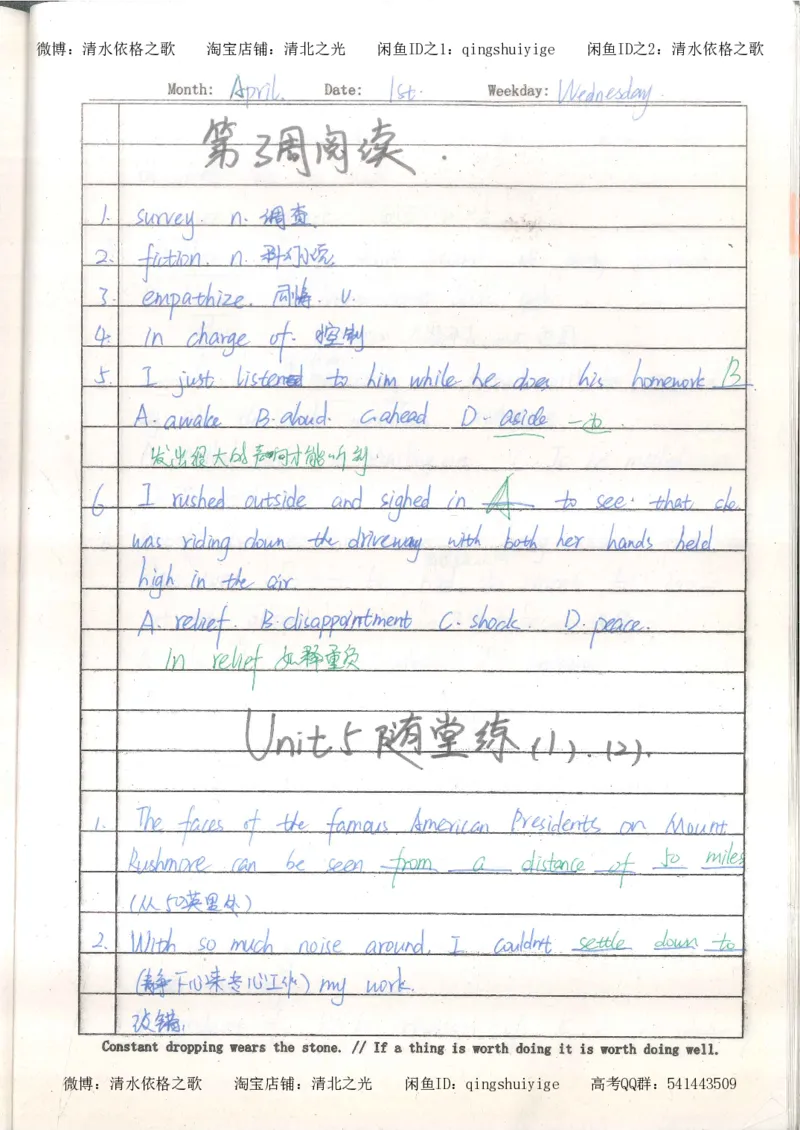 微博：清水依格之歌 淘宝店铺：清北之光 闲鱼ID之1：qingshuiyige 闲鱼ID之2：清水依格之歌
Month: April. Date: 1st. Weekday: Wednesday.
第3周阅读.
1. survey. n. 调查.
2. fiction. n. 科幻小说
3. empathize. 同情. v.
4. in charge of. 控制
5. I just listened to him while he does his homework B.
A. awake B. aloud. C. ahead D. aside 一边.
发出很大的声响才能听到
6 I rushed outside and sighed in A to see that she
was riding down the driveway with both her hands held
high in the air.
A. relief. B. disappointment C. shock. D. peace.
In relief 如释重负
Unit 5 随堂练 (1).(2).
1. The faces of the famous American Presidents on Mount
Rushmore can be seen from a distance of 50 miles
(从50英里外)
2. With so much noise around, I couldn't settle down to
(静下心来专心工作) my work.
改错.
Constant dropping wears the stone. // If a thing is worth doing it is worth doing well.
微博：清水依格之歌 淘宝店铺：清北之光 闲鱼ID：qingshuiyige 高考QQ群：541443509